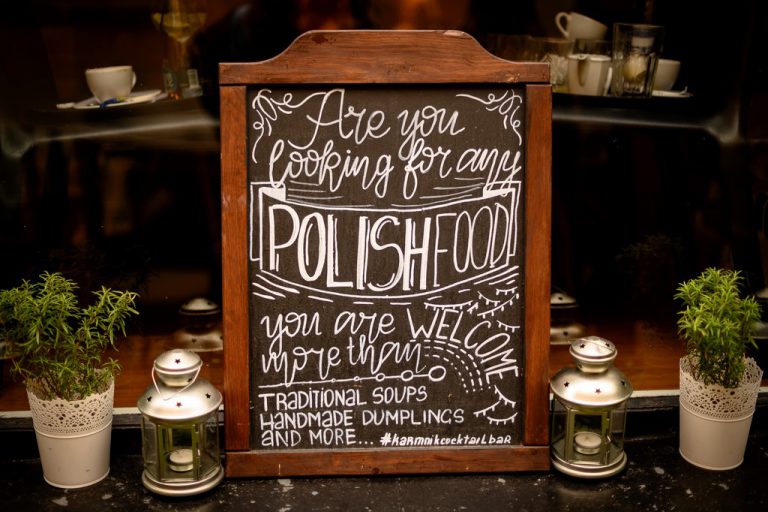 Are you
looking for any
POLISH FOOD
you are WELCOME
more than
TRADITIONAL SOUPS
HANDMADE DUMPLINGS
AND MORE... #karmnikcocktailbar